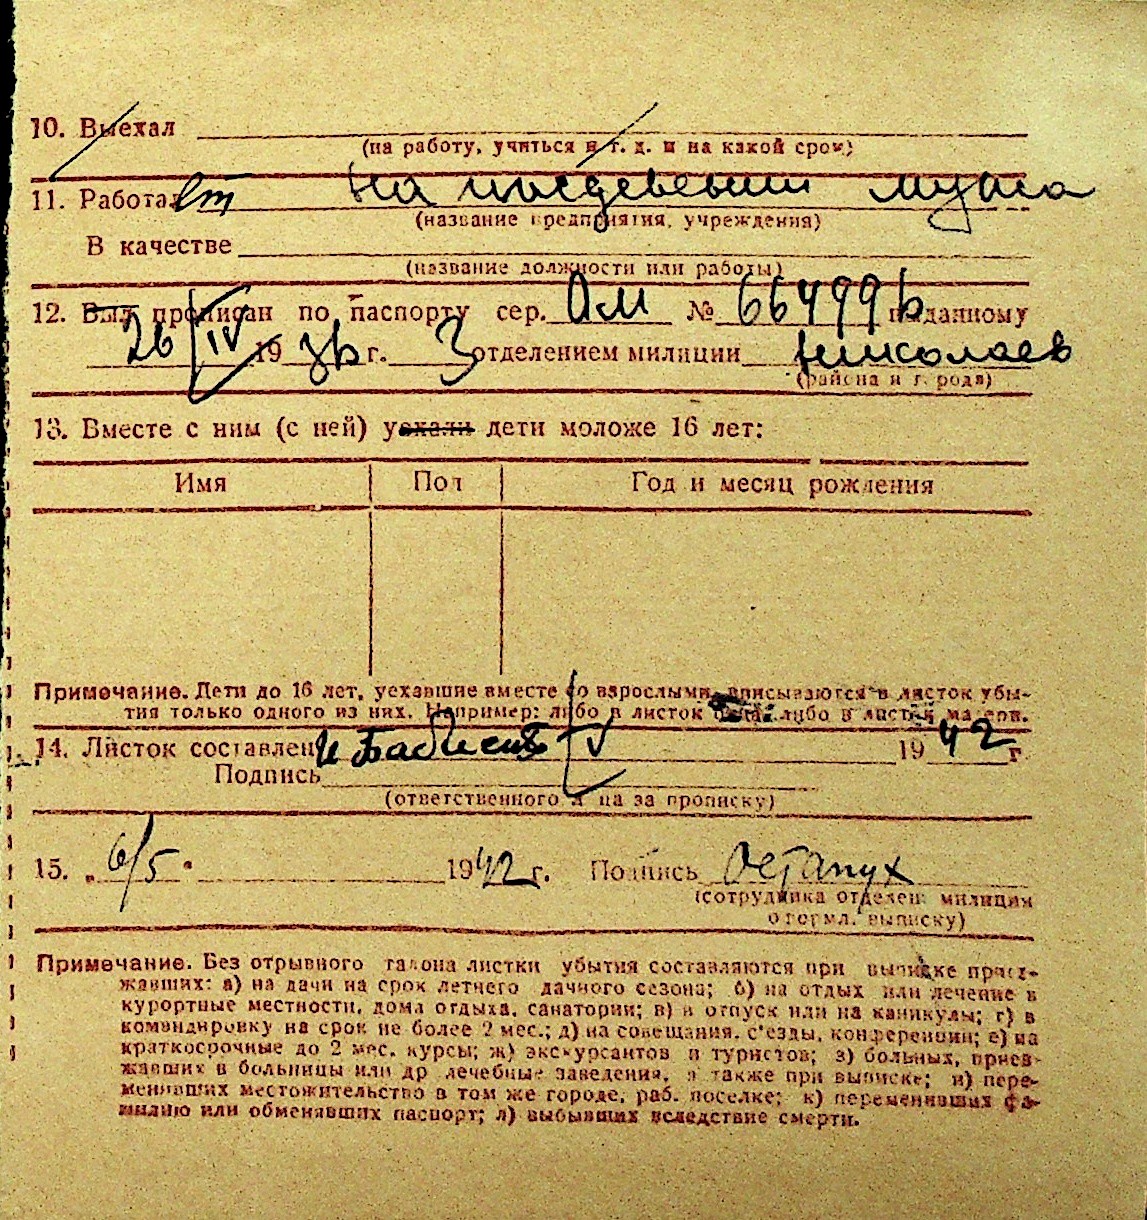 10. Выехал
(на работу, учиться и т. д. и на какой срок)
11. Работает на иждевении мужа
(название предприятия, учреждения)
В качестве
(название должности или работы)
12. Был прописан по паспорту сер. ОМ № 664996 выданному
26/IV 1936 г. 3 отделением милиции Николаев
(района и города)
13. Вместе с ним (с ней) уехали дети моложе 16 лет:
Имя Пол Год и месяц рождения
Примечание. Дети до 16 лет, уехавшие вместе со взрослыми, вписываются в листок убы-
тия только одного из них. Например: либо в листок либо в листок матери.
14. Листок составлен V 1942 г.
Подпись
(ответственного лица за прописку)
15. „6/5" 1942 г. Подпись Остапух
(сотрудника отделен. милиции
оформл. выписку)
Примечание. Без отрывного талона листки убытия составляются при выписке приез-
жавших: а) на дачи на срок летнего дачного сезона; б) на отдых или лечение в
курортные местности, дома отдыха, санатории; в) в отпуск или на каникулы; г) в
командировку на срок не более 2 мес.; д) на совещания, с'езды, конференции; е) на
краткосрочные до 2 мес. курсы; ж) экскурсантов и туристов; з) больных, приез-
жавших в больницы или др лечебные заведения, а также при выписке; и) пере-
менивших местожительство в том же городе, раб. поселке; к) переменивших фа-
милию или обменявших паспорт; л) выбывших вследствие смерти.